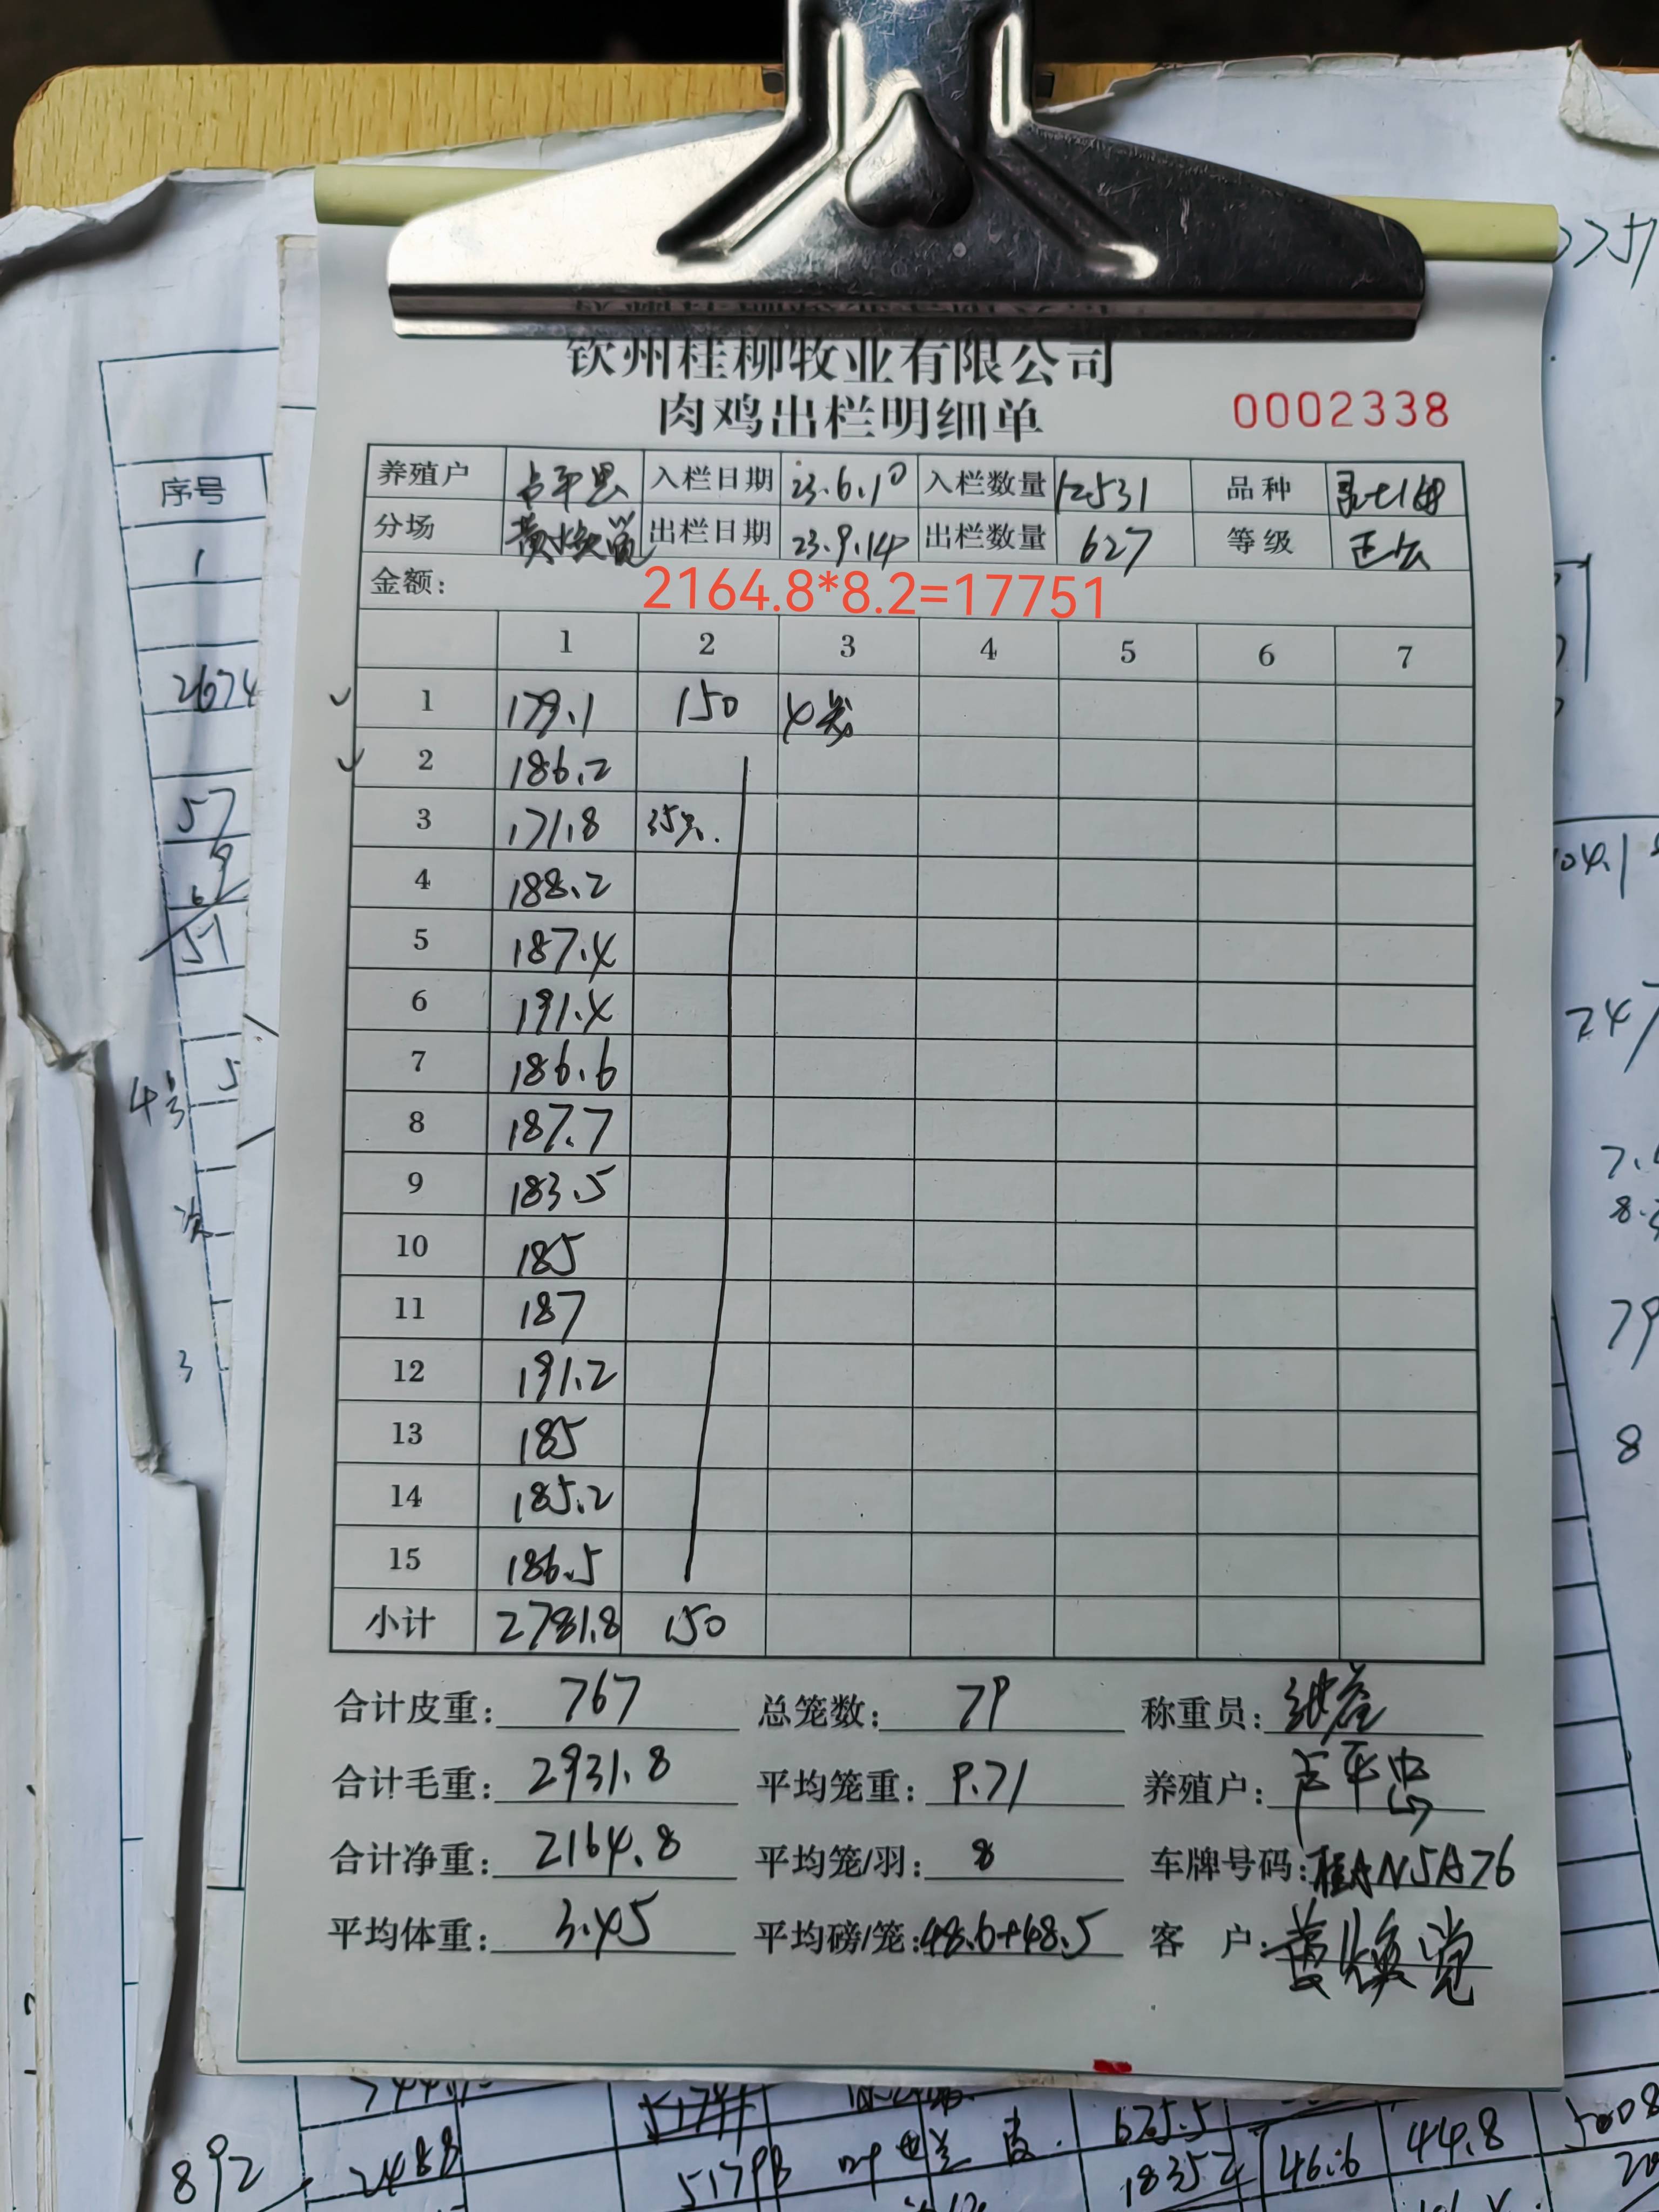 钦州桂柳牧业有限公司
肉鸡出栏明细单 0002338
养殖户 入栏日期 23.6.10 入栏数量 12531 品种
分场 黄焕党 出栏日期 23.9.14 出栏数量 627 等级 正公
金额: 2164.8*8.2=17751
1 2 3 4 5 6 7
1 179.1 150 4笼
2 186.2
3 171.8 35只.
4 188.2
5 187.4
6 191.4
7 186.6
8 187.7
9 183.5
10 185
11 187
12 191.2
13 185
14 185.2
15 186.5
小计 2781.8 150
合计皮重: 767 总笼数: 79 称重员:
合计毛重: 2931.8 平均笼重: 9.71 养殖户:
合计净重: 2164.8 平均笼/羽: 8 车牌号码: 桂AN5A76
平均体重: 3.45 平均磅/笼: 48.6+48.5 客 户: 黄焕党
序号
1
2674
57
51
4号
3
104.1
247
79
8
892
2488
625.5
18352
46.6
44.8